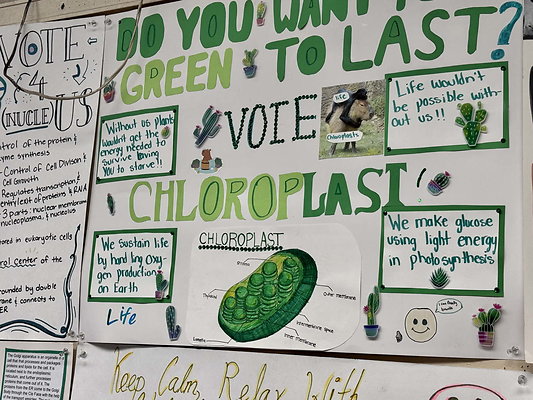 DO YOU WANT TO
GREEN TO LAST?
VOTE
CHLOROPLAST!
Without us plants
wouldn't get the
energy needed to
survive leaving
you to starve!!
life
chloroplasts
Life wouldn't
be possible with-
out us!!
We sustain life
by handling Oxy-
gen production
on Earth
Life
CHLOROPLAST
Stroma
Thylakoid
Outer membrane
Intermembrane space
Inner membrane
Lamella
We make glucose
using light energy
in photosynthesis
I can finally
breathe
VOTE
4
(NUCLE)US
control of the protein &
enzyme synthesis
- Control of Cell Division &
Cell Growth
- Regulates transcription &
entry/exit of proteins & RNA
- 3 parts: nuclear membrane
nucleoplasm, & nucleolus
stored in eukaryotic cells
center of the
surrounded by double
connects to
ER
The Golgi apparatus is an organelle
Keep Calm, Relax With